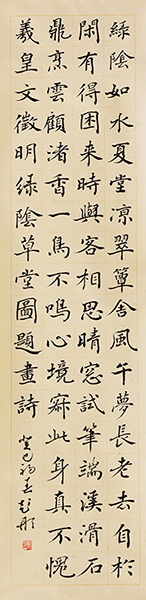 綠陰如水夏堂凉翠簟含風午夢長老去自於
閑有得困来時與客相思晴窓試筆端溪滑石
鼎烹雲顧渚香一鳥不鳴心境寂此身真不愧
羲皇文徵明綠陰草堂圖題畫詩
癸巳